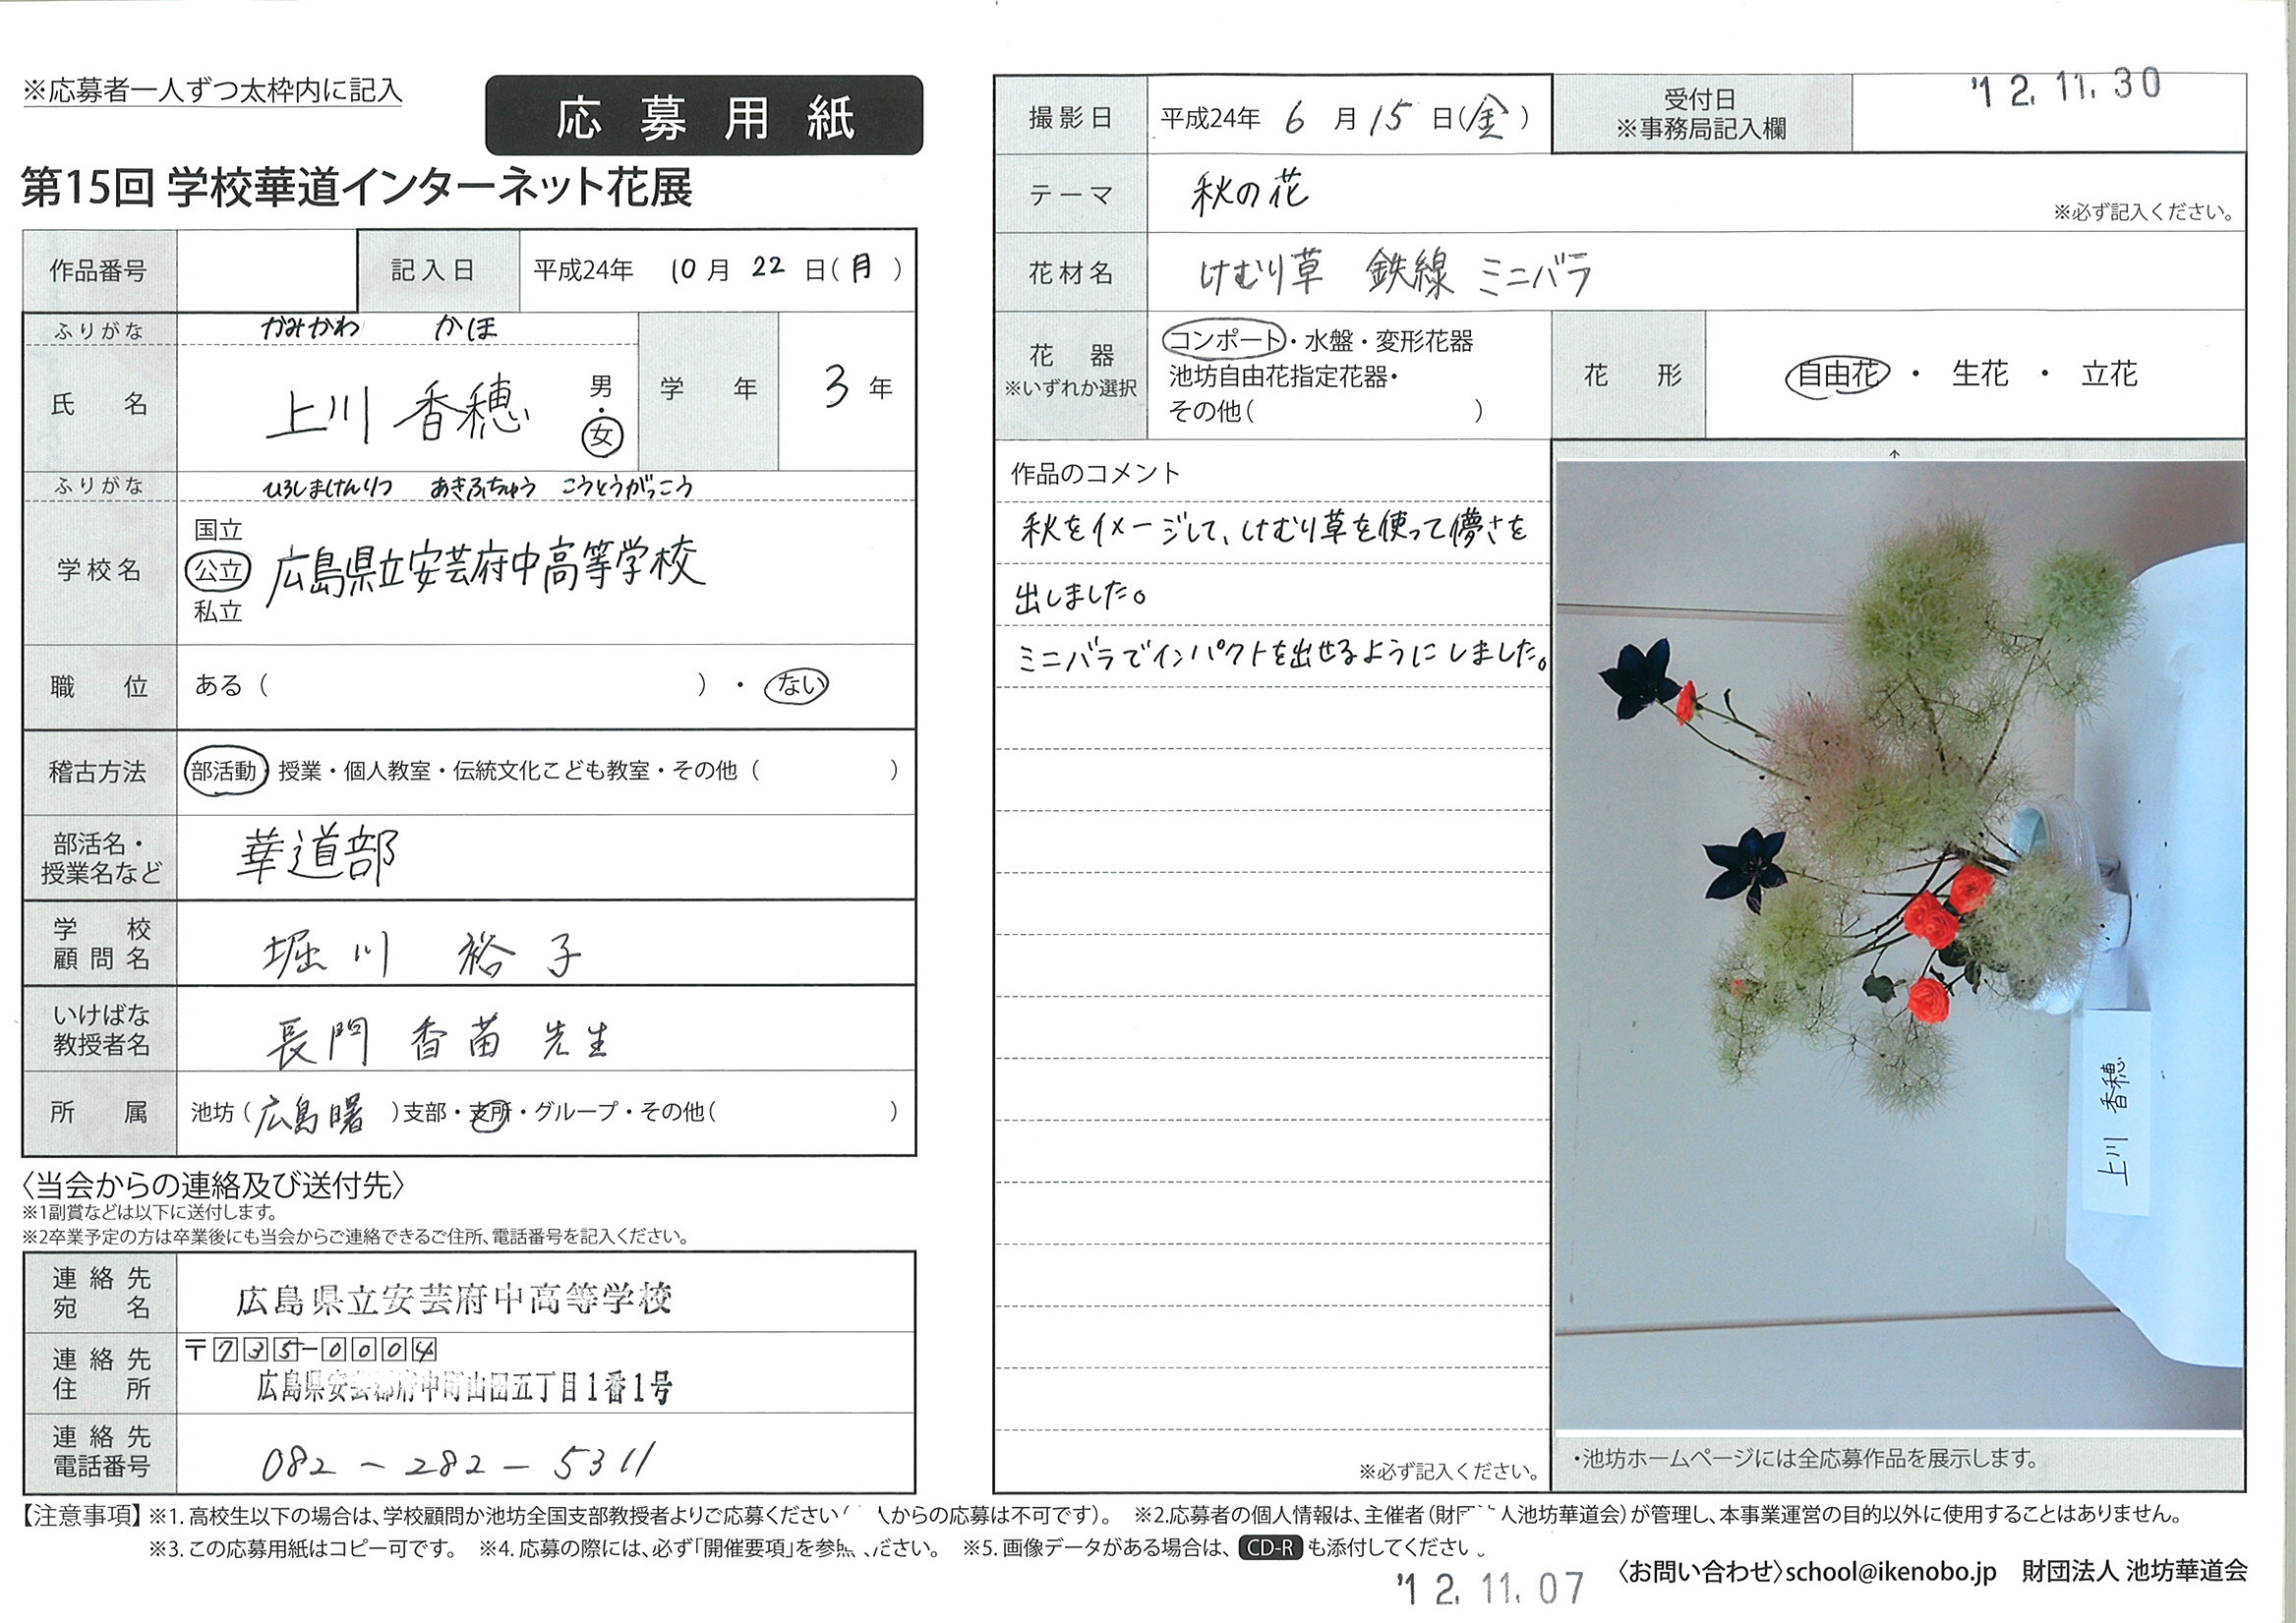 ※応募者一人ずつ太枠内に記入
応募用紙
第15回 学校華道インターネット花展
作品番号
記入日 平成24年 10月 22日(月)
ふりがな かみかわ かほ
氏名 上川 香穂 男・女
学年 3年
ふりがな ひろしまけんりつ あきふちゅう こうとうがっこう
学校名 国立 公立 私立 広島県立安芸府中高等学校
職位 ある( )・ない
稽古方法 部活動・授業・個人教室・伝統文化こども教室・その他( )
部活名・授業名など 華道部
学校顧問名 堀川 裕子
いけばな教授者名 長門 香苗 先生
所属 池坊(広島曙)支部・支所・グループ・その他( )
〈当会からの連絡及び送付先〉
※1副賞などは以下に送付します。
※2卒業予定の方は卒業後にも当会からご連絡できるご住所、電話番号を記入ください。
連絡先宛名 広島県立安芸府中高等学校
連絡先住所 〒735-0004
広島県安芸郡府中町山田五丁目1番1号
連絡先電話番号 082-282-5311
撮影日 平成24年 6月15日(金)
受付日 ※事務局記入欄 '12.11.30
テーマ 秋の花 ※必ず記入ください。
花材名 けむり草 鉄線 ミニバラ
花器 ※いずれか選択
コンポート・水盤・変形花器
池坊自由花指定花器・
その他( )
花形 自由花・生花・立花
作品のコメント
秋をイメージして、けむり草を使って儚さを
出しました。
ミニバラでインパクトを出せるようにしました。
※必ず記入ください。
上川 香穂
・池坊ホームページには全応募作品を展示します。
【注意事項】※1.高校生以下の場合は、学校顧問か池坊全国支部教授者よりご応募ください( 人からの応募は不可です)。 ※2.応募者の個人情報は、主催者(財団 人池坊華道会)が管理し、本事業運営の目的以外に使用することはありません。
※3.この応募用紙はコピー可です。 ※4.応募の際には、必ず「開催要項」を参照 ださい。 ※5.画像データがある場合は、CD-Rも添付してください。
〈お問い合わせ〉school@ikenobo.jp 財団法人 池坊華道会
'12.11.07